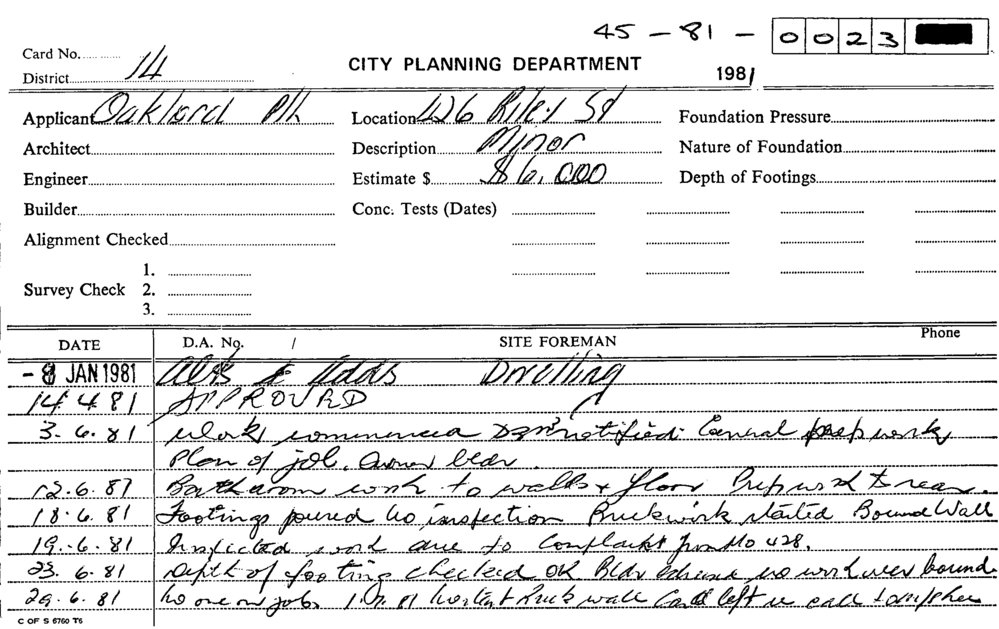 45 - 81 - 0023
Card No.
District 14
CITY PLANNING DEPARTMENT
1981
Applicant Oakland P/L
Location 426 Riley St
Foundation Pressure
Architect
Description Minor
Nature of Foundation
Engineer
Estimate $ $6,000
Depth of Footings
Builder
Conc. Tests (Dates)
Alignment Checked
1.
Survey Check 2.
3.
DATE D.A. No. / SITE FOREMAN Phone
- 8 JAN 1981 Alts & Adds Dwelling
14.4.81 APPROVED
3.6.81 Work commenced notified. General prep work
Plan of job. Owner bldr.
12.6.81 Bathroom work to walls + floor Prep work to rear.
18.6.81 Footings poured no inspection Brickwork started Bound Wall
19.6.81 Inspected work due to Complaint from No 428.
23.6.81 Depth of footing checked OK Bldr no work over bound.
29.6.81 No one on job. brick wall Card left re call
C OF S 6760 T6